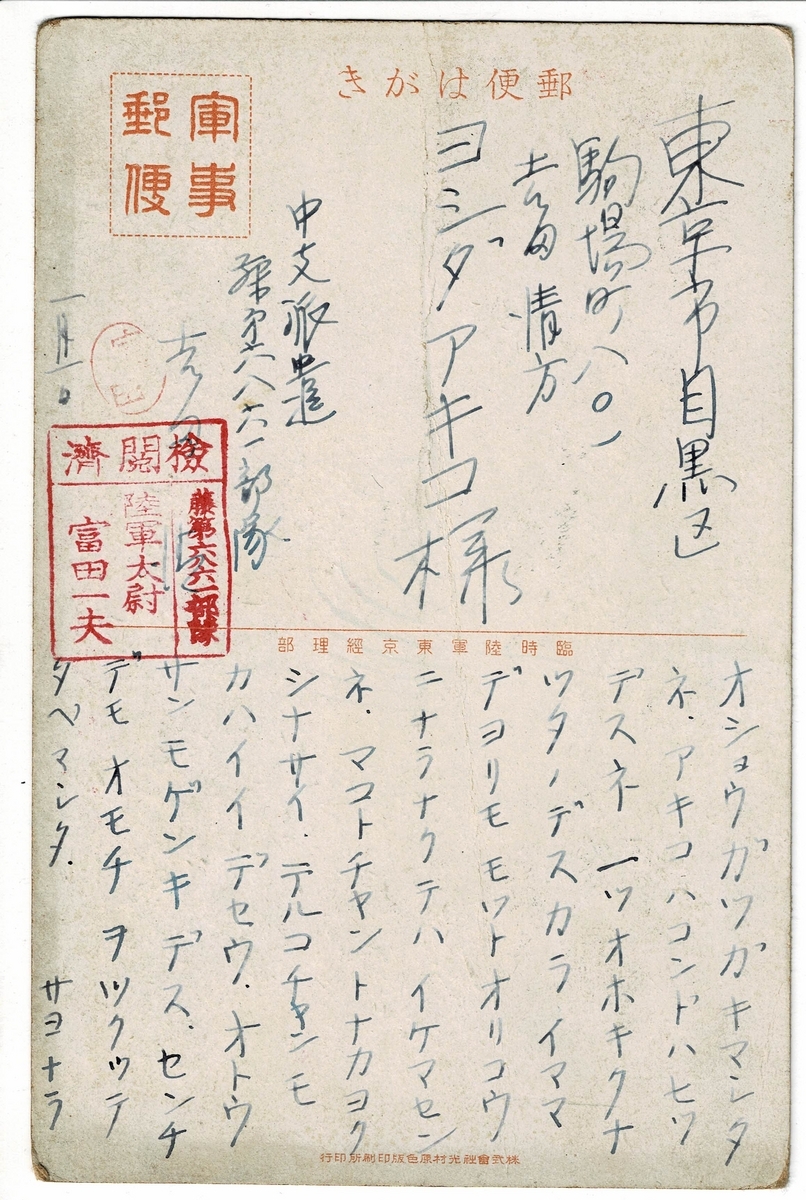 郵便はがき
軍事
郵便
東京市目黒区
駒場町八〇一
吉田清方
ヨシダアキコ様
中支派遣
藤第六八六一部隊
吉田
一月一日
検閲済
藤第六八六一部隊
陸軍大尉
富田一夫
臨時陸軍東京經理部
オショウガツガキマシタ
ネ.アキコハコンドハヒツ
デスネ 一ツオホキクナ
ツタノデスカラ イママ
デヨリモモットオリコウ
ニナラナクテハイケマセン
ネ.マコトチャントナカヨク
シナサイ.テルコチャンモ
カハイイデセウ.オトウ
サンモゲンキデス.センチ
デモオモチヲツクッテ
タベマシタ. サヨナラ
株式會社光村原色版印刷所印行